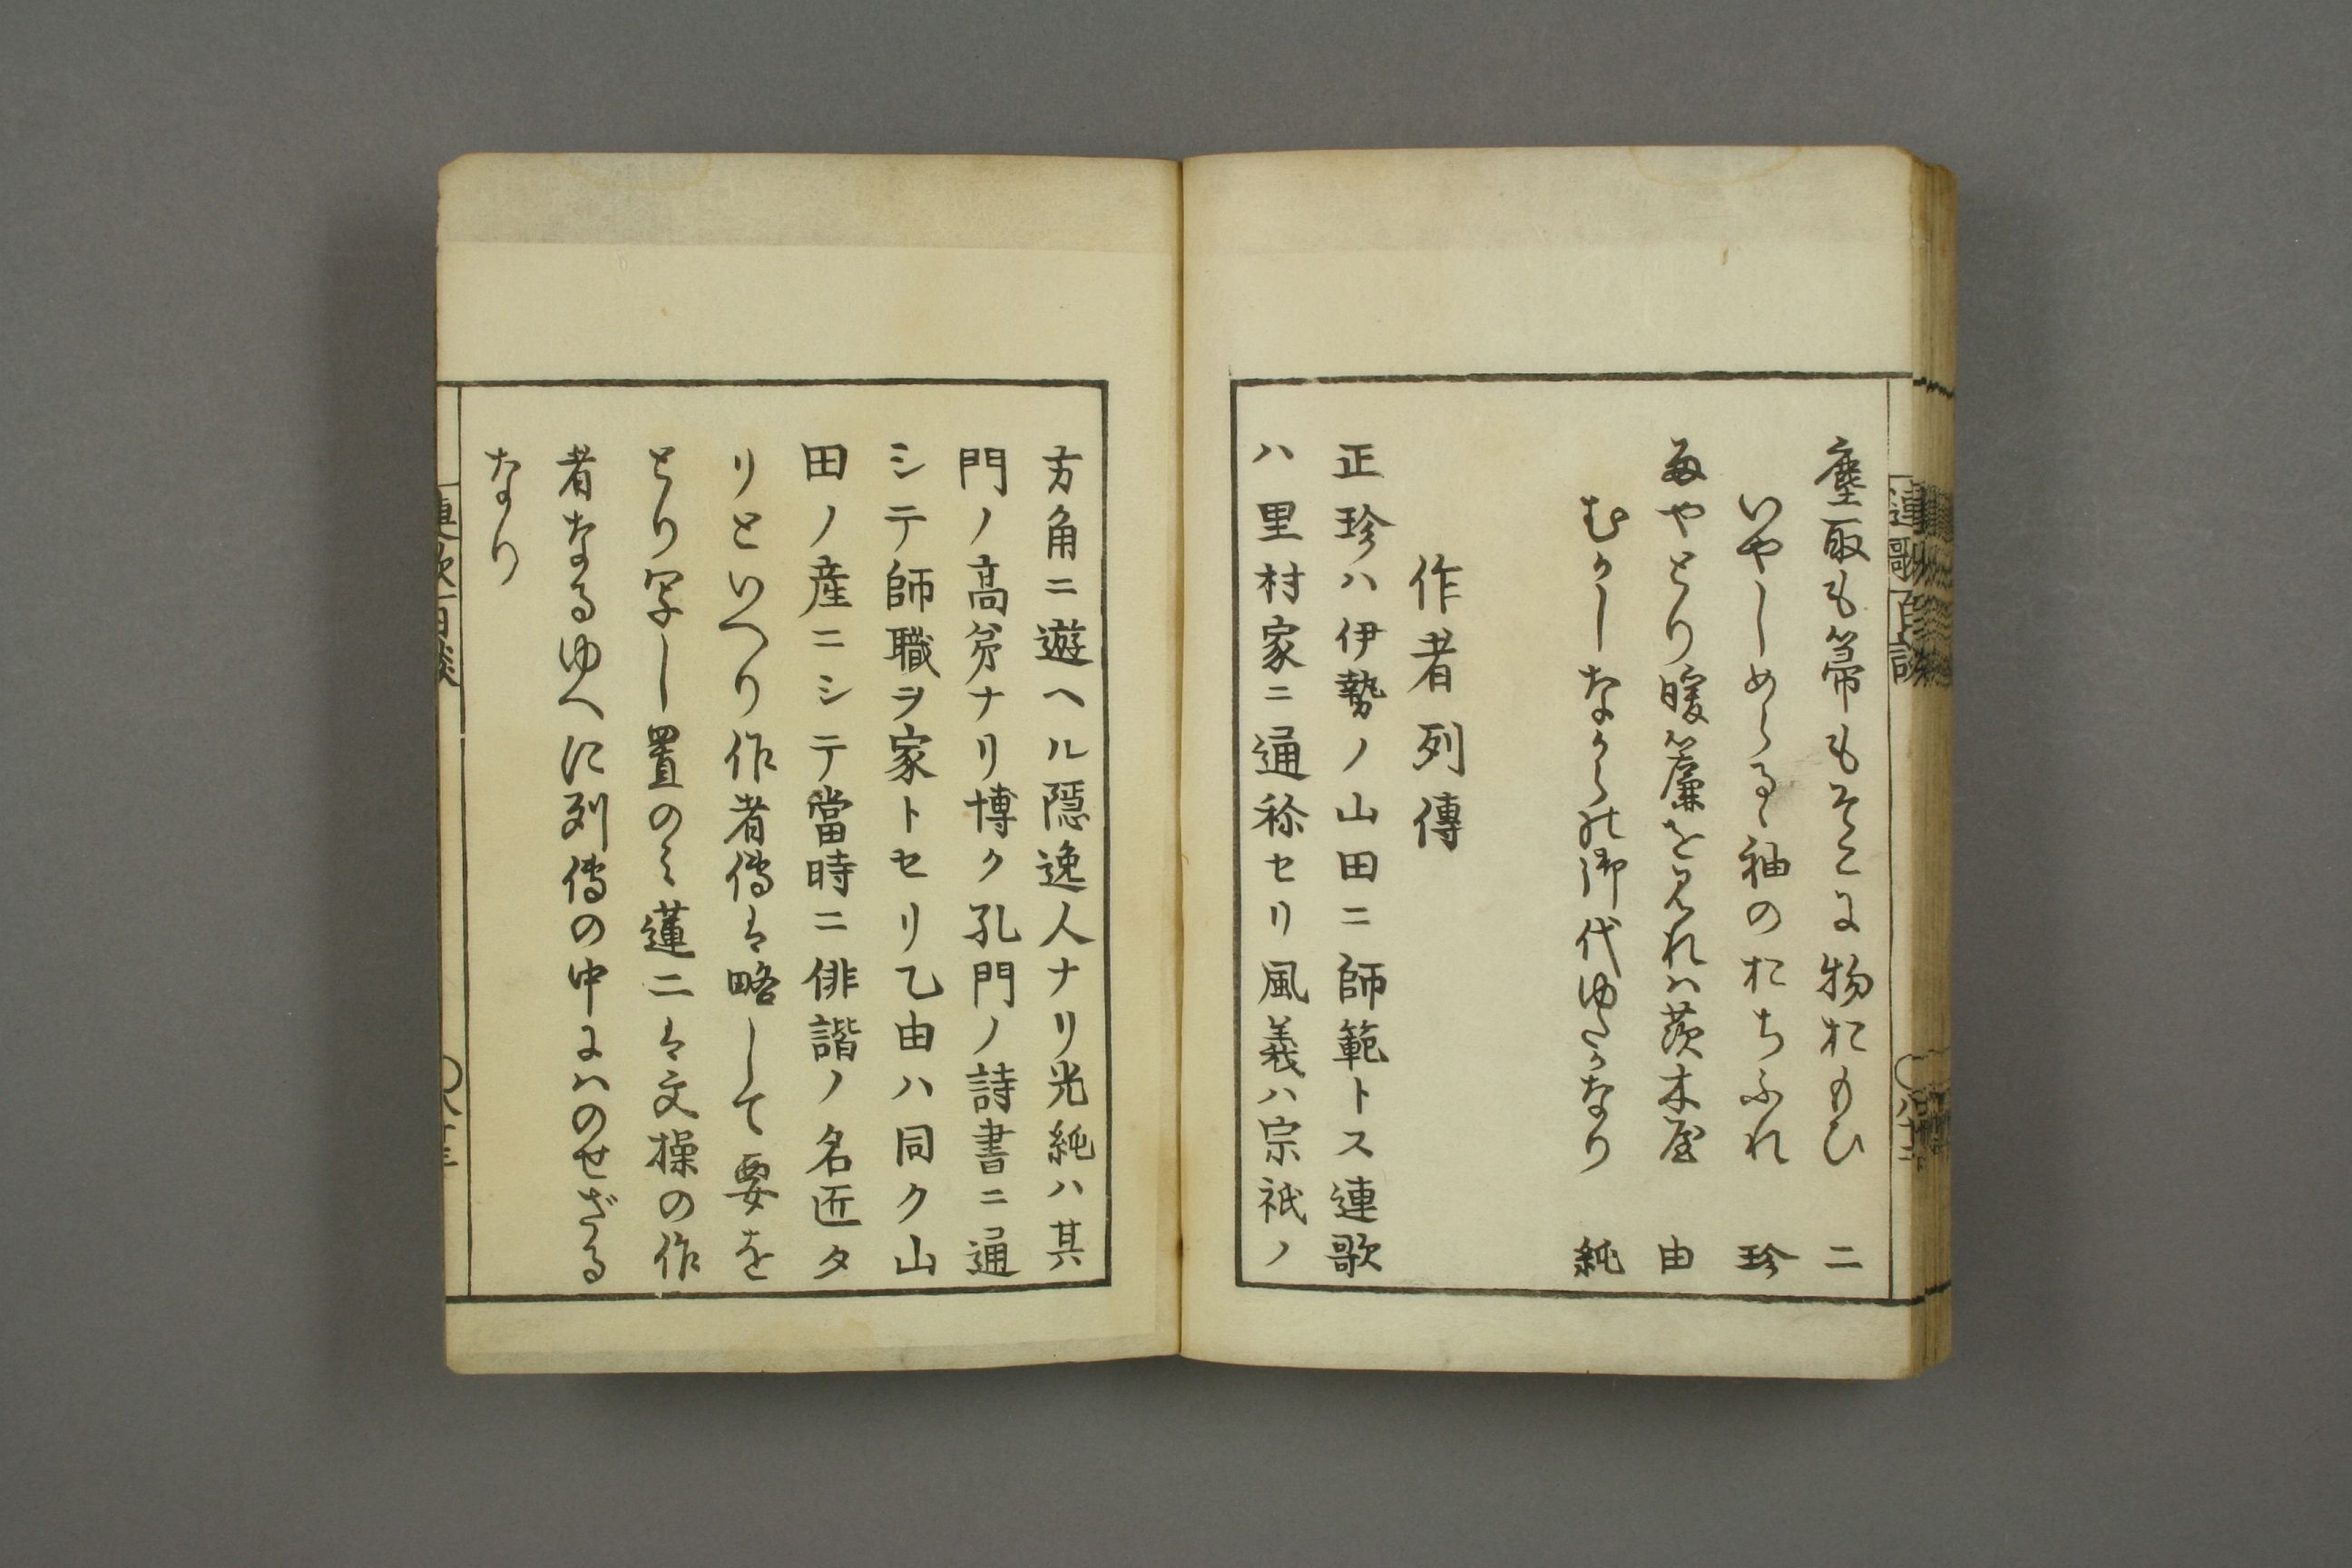 塵取も箒もそこに物おもひ　二
いやしめらるゝ袖のおちふれ　珍
雨やとり暖簾を見れは茨木屋　由
むかしなからの御代ゆたかなり　純
作者列傳
正珍ハ伊勢ノ山田ニ師範トス連歌
ハ里村家ニ通称セリ風義ハ宗祇ノ
方角ニ遊ヘル隠逸人ナリ光純ハ其
門ノ高弟ナリ博ク孔門ノ詩書ニ通
シテ師職ヲ家トセリ乙由ハ同ク山
田ノ産ニシテ當時ニ俳諧ノ名匠タ
リといへり作者傳は略して要を
とり写し置のみ蓮二は文操の作
者なるゆへに列傳の中にハのせざる
なり